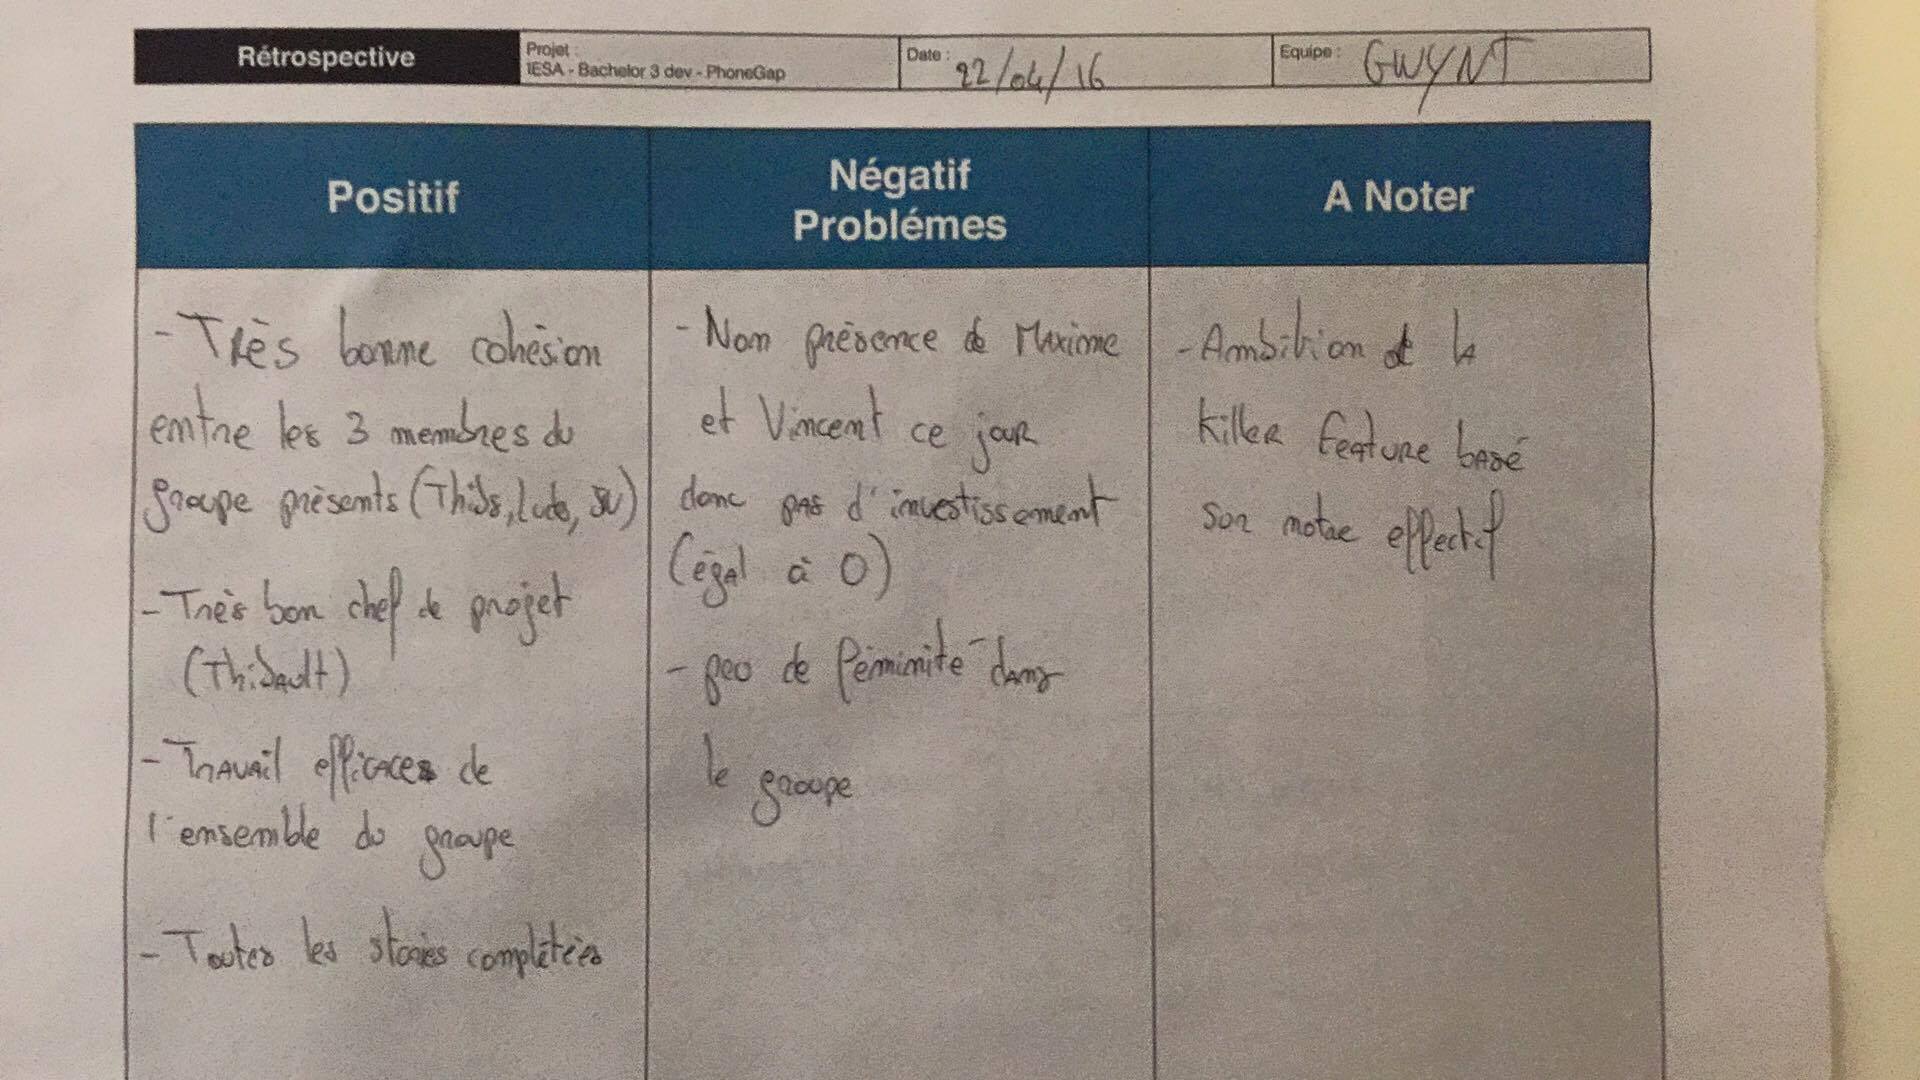 Rétrospective
Projet :
IESA - Bachelor 3 dev - PhoneGap
Date : 22/04/16
Equipe : GWYNT
Positif
- Très bonne cohésion
entre les 3 membres du
groupe présents (Thibs, Ludo,
- Très bon chef de projet
(Thibault)
- Travail efficaces de
l'ensemble du groupe
- Toutes les stories complétées
Négatif
Problémes
- Non présence de Maxime
et Vincent ce jour
donc pas d'investissement
(égal à 0)
- peu de féminité dans
le groupe
A Noter
- Ambition de la
killer feature basé
sur notre effectif